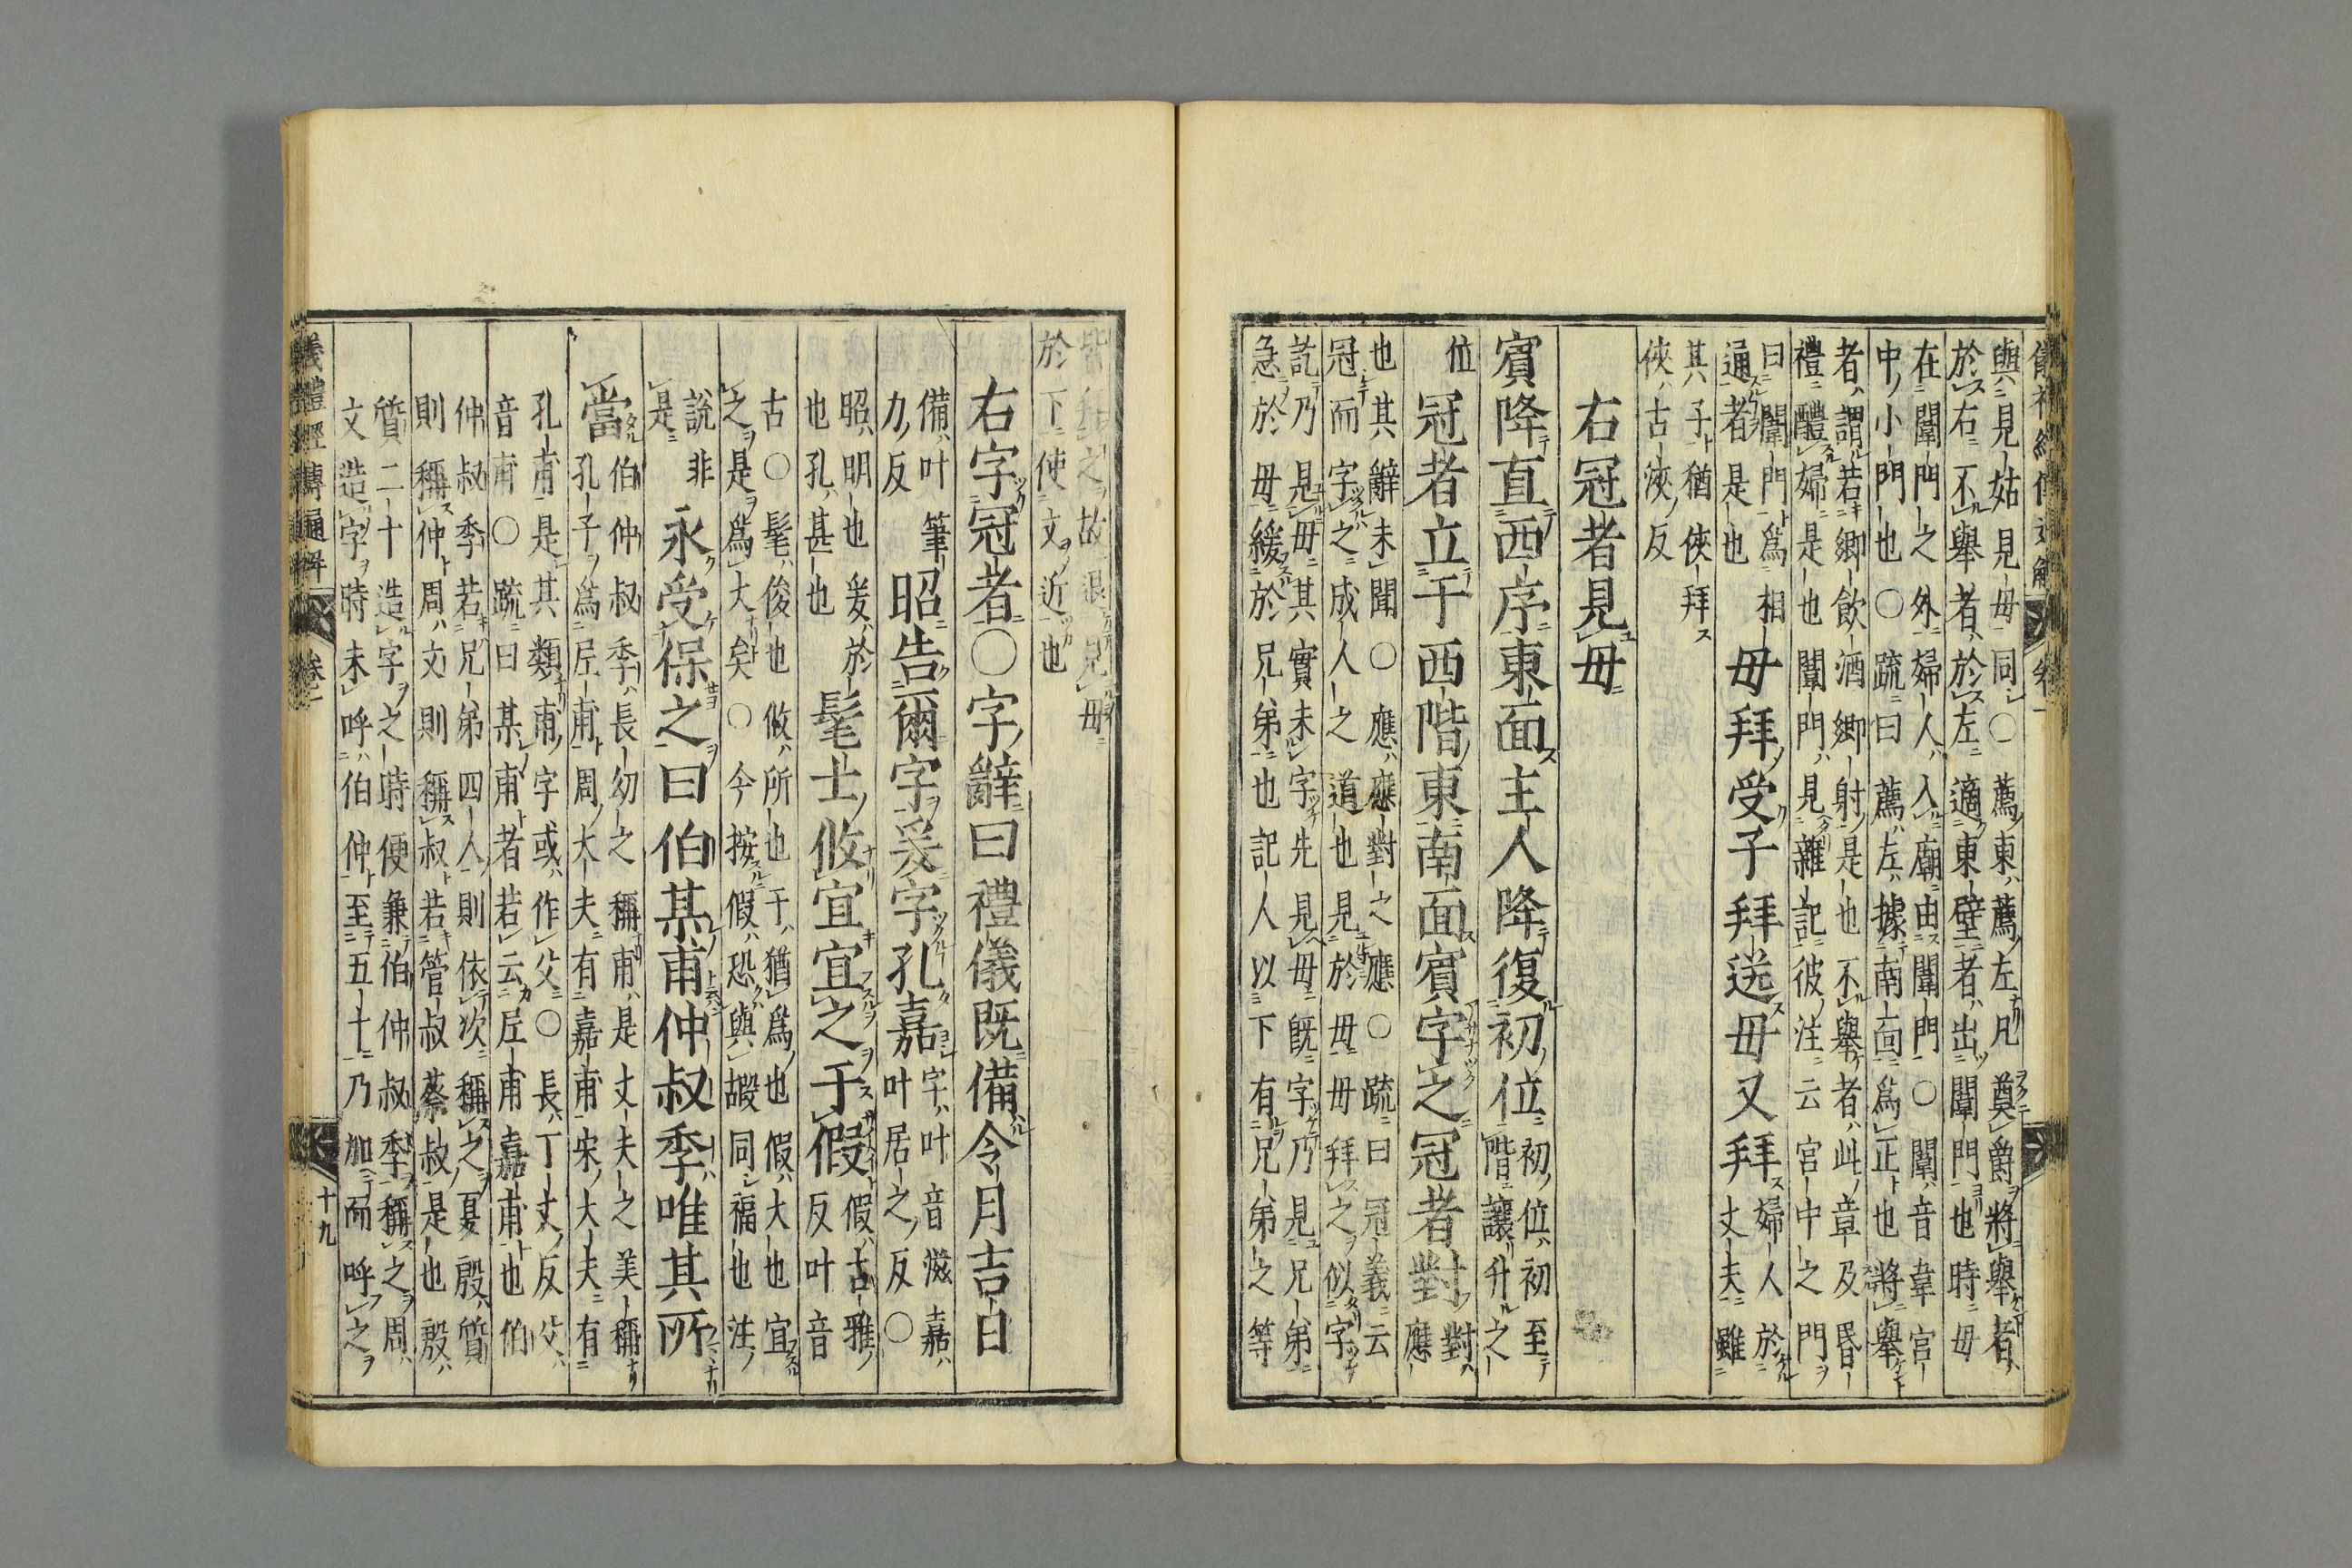 與見姑見母同○薦東薦左凡奠爵將舉者
於右不舉者於左適東壁者出闈門也時母
在闈門之外婦人入廟由闈門○闈音韋宮
中小門也○疏曰薦左據南面爲正也將舉
者謂若鄉飲酒鄉射是也不舉者此章及昏
禮醴婦是也闈門見雜記彼注云宮中之門
曰闈門爲相
通者是也
母拜受子拜送母又拜
婦人於
丈夫雖
其子猶俠拜
俠古浹反
右冠者見母
賓降直西序東面主人降復初位
初位初至
階讓升之
位
冠者立于西階東南面賓字之冠者對
對
應
也其辭未聞○應應對之應○疏曰冠義云
冠而字之成人之道也見於母母拜之似字
訖乃見母其實未字先見母既字乃見兄弟
急於母緩於兄弟也記人以下有兄弟之等
皆拜之故退見母
於下使文近也
右字冠者○字辭曰禮儀既備令月吉日
備叶筆
力反
昭告爾字爰字孔嘉
字叶音滋嘉
叶居之反○
昭明也爰於
也孔甚也
髦士攸宜宜之于假
假古雅
反叶音
古○髦俊也攸所也于猶爲也假大也宜
之是爲大矣○今按假恐與嘏同福也注
說非
是
永受保之曰伯某甫仲叔季唯其所
當
伯仲叔季長幼之稱甫是丈夫之美稱
孔子爲尼甫周大夫有嘉甫宋大夫有
孔甫是其類甫字或作父○長丁丈反父
音甫○疏曰某甫者若云尼甫嘉甫也伯
仲叔季若兄弟四人則依次稱之夏殷質
則稱仲周文則稱叔若管叔蔡叔是也殷
質二十造字之時便兼伯仲叔季稱之周
文造字時未呼伯仲至五十乃加而呼之
儀禮經傳通解
卷一
十九